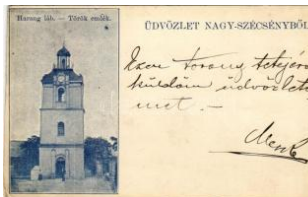 Harang láb. – Török emlék.
ÜDVÖZLET NAGY-SZÉCSÉNYBŐL
Ezen torony tetejéről
küldöm üdvözlete-
met. –